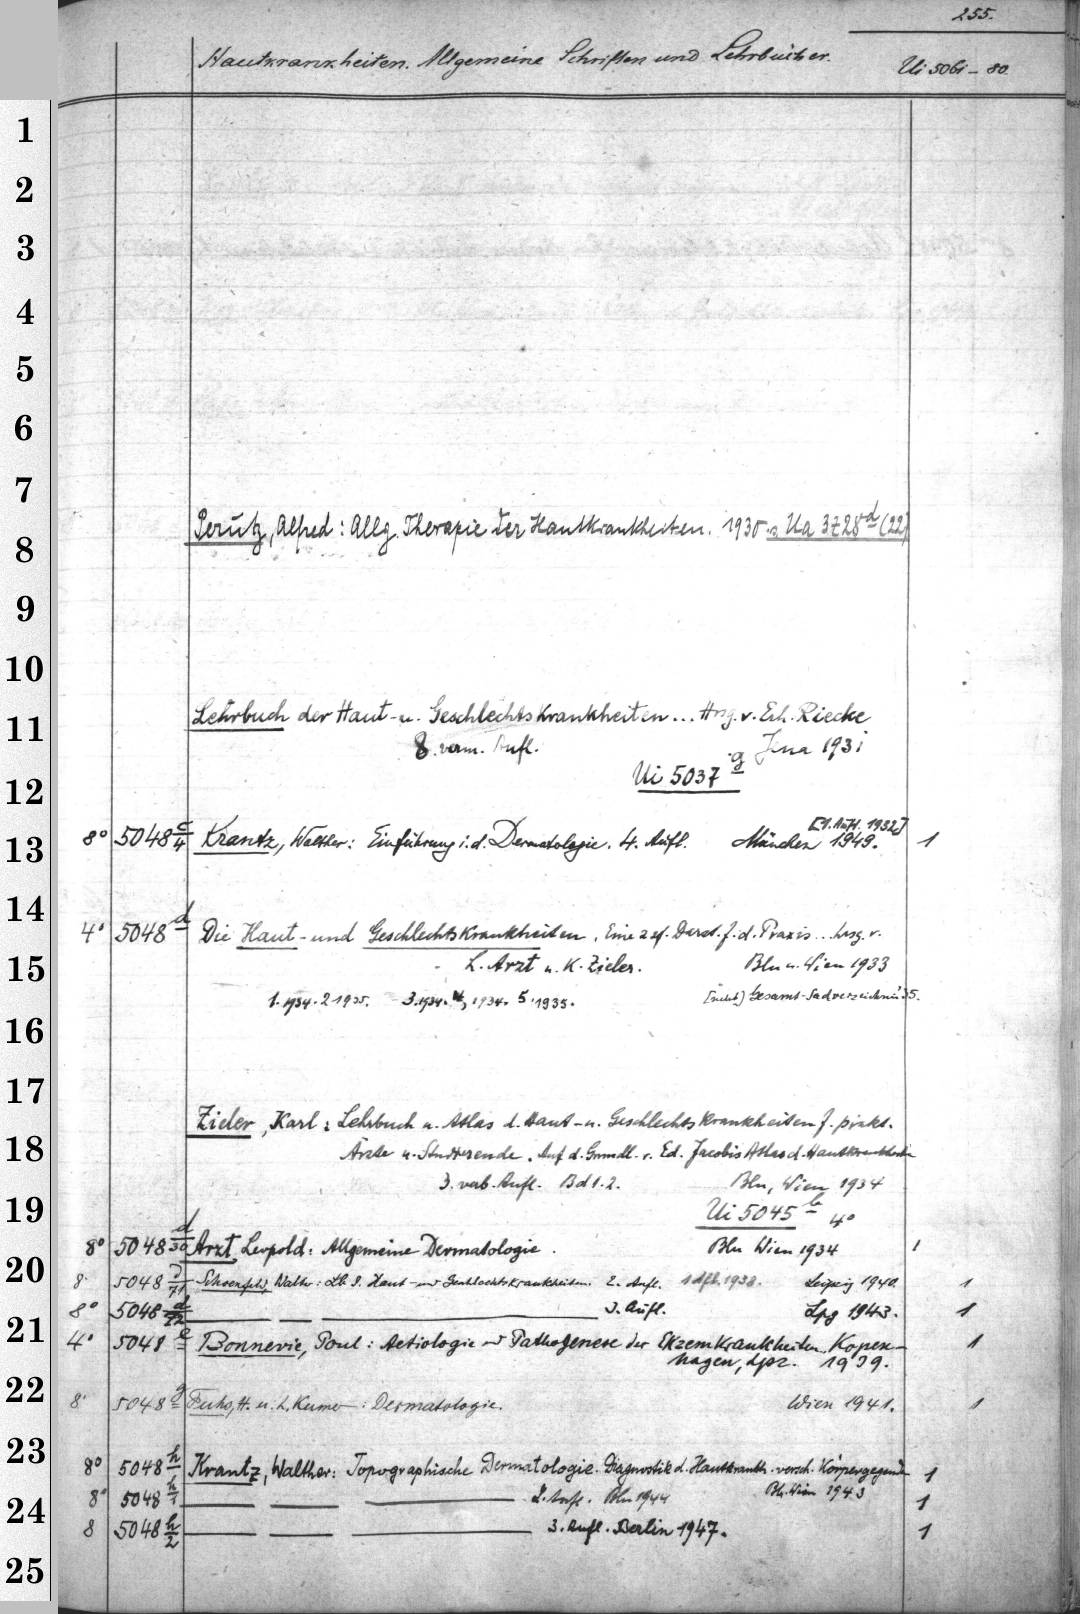 255.
Hautkrankheiten. Allgemeine Schriften und Lehrbücher. Ui 5061 - 80
1
2
3
4
5
6
7
Perutz, Alfred: Allg. Therapie der Hautkrankheiten. 1930 s. Ua 3728 d (22)
8
9
10
Lehrbuch der Haut- u. Geschlechtskrankheiten... Hrsg. v. Erh. Riecke
11
8. verm. Aufl. Jena 1931
Ui 5037 g
12
[1. Aufl. 1932]
13 8° 5048 c/4 Krantz, Walther: Einführung i. d. Dermatologie. 4. Aufl. München 1949. 1
14
4° 5048 d Die Haut- und Geschlechtskrankheiten. Eine zsf. Darst. f. d. Praxis... hrsg. v.
15 L. Arzt u. K. Zieler. Bln u. Wien 1933
1. 1934. 2 1935. 3. 1934. 4, 1934. 5. 1935. Gesamt-Sachverzeichnis 35.
16
17
Zieler, Karl: Lehrbuch u. Atlas d. Haut- u. Geschlechtskrankheiten f. prakt.
18 Ärzte u. Studierende. Auf d. Grundl. v. Ed. Jacobis Atlas d. Hautkrankheiten
3. verb. Aufl. Bd 1. 2. Bln, Wien 1934
19 Ui 5045 b 4°
8° 5048 d/30 Arzt, Leopold: Allgemeine Dermatologie. Bln Wien 1934 1
20 8° 5048 d/71 Schoenfeld, Walter: Lb. d. Haut- und Geschlechtskrankheiten. 2. Aufl. 1 Afl. 1938. Leipzig 1940 1
8° 5048 d/72 — — — 3. Aufl. Lpg 1943. 1
21 4° 5048 e Bonnevie, Poul: Aetiologie und Pathogenese der Ekzemkrankheiten. Kopen-
hagen, Lpz. 1939. 1
22 8° 5048 g Fuhs, H. u. L. Kumer: Dermatologie. Wien 1941. 1
23
8° 5048 h Krantz, Walther: Topographische Dermatologie. Diagnostik d. Hautkrankh. versch. Körpergegenden 1
Bln. Wien 1943
8° 5048 h/1 — — — 2. Aufl. Bln 1944 1
24
8 5048 h/2 — — — 3. Aufl. Berlin 1947. 1
25